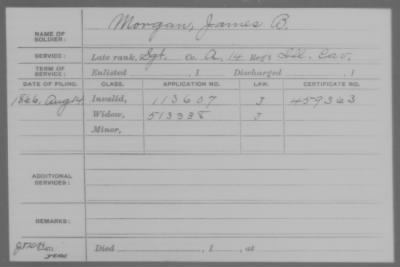 NAME OF SOLDIER: Morgan, James B.
SERVICE: Late rank, Sgt. Co. A, 14 Reg't Ill. Cav.
TERM OF SERVICE: Enlisted , 1 Discharged , 1
DATE OF FILING. CLASS. APPLICATION NO. LAW. CERTIFICATE NO.
1866, Aug 14 Invalid, 113607 J 459363
Widow, 513338 J
Minor,
ADDITIONAL SERVICES:
REMARKS:
Died , 1 , at